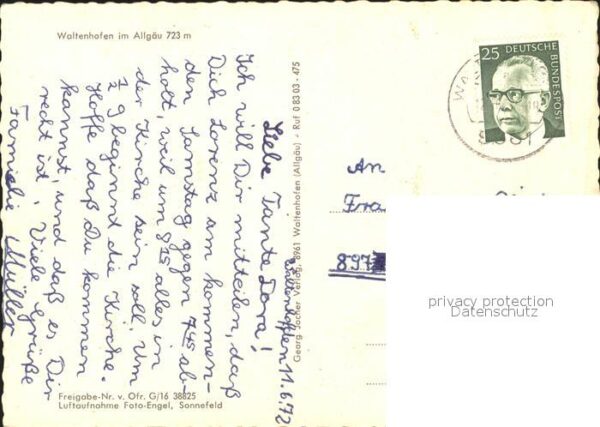 Waltenhofen im Allgäu 723 m
Waltenhofen 11.6.72
Liebe Tante Dora!
Ich will Dir mitteilen, daß
Dich Lorenz am kommen-
den Samstag gegen 7 45 ab-
holt, weil um 8 15 alles in
der Kirche sein soll. Um
1/2 9 beginnt die Kirche.
Hoffe daß Du kommen
kannst, und daß es Dir
recht ist. Viele Grüße
Familie Müller
Freigabe-Nr. v. Ofr. G/16 38825
Luftaufnahme Foto-Engel, Sonnefeld
Georg Jocher Verlag, 8961 Waltenhofen (Allgäu) - Ruf 0 83 03 - 475
25 DEUTSCHE
BUNDESPOST
An
Fra
897
privacy protection
Datenschutz